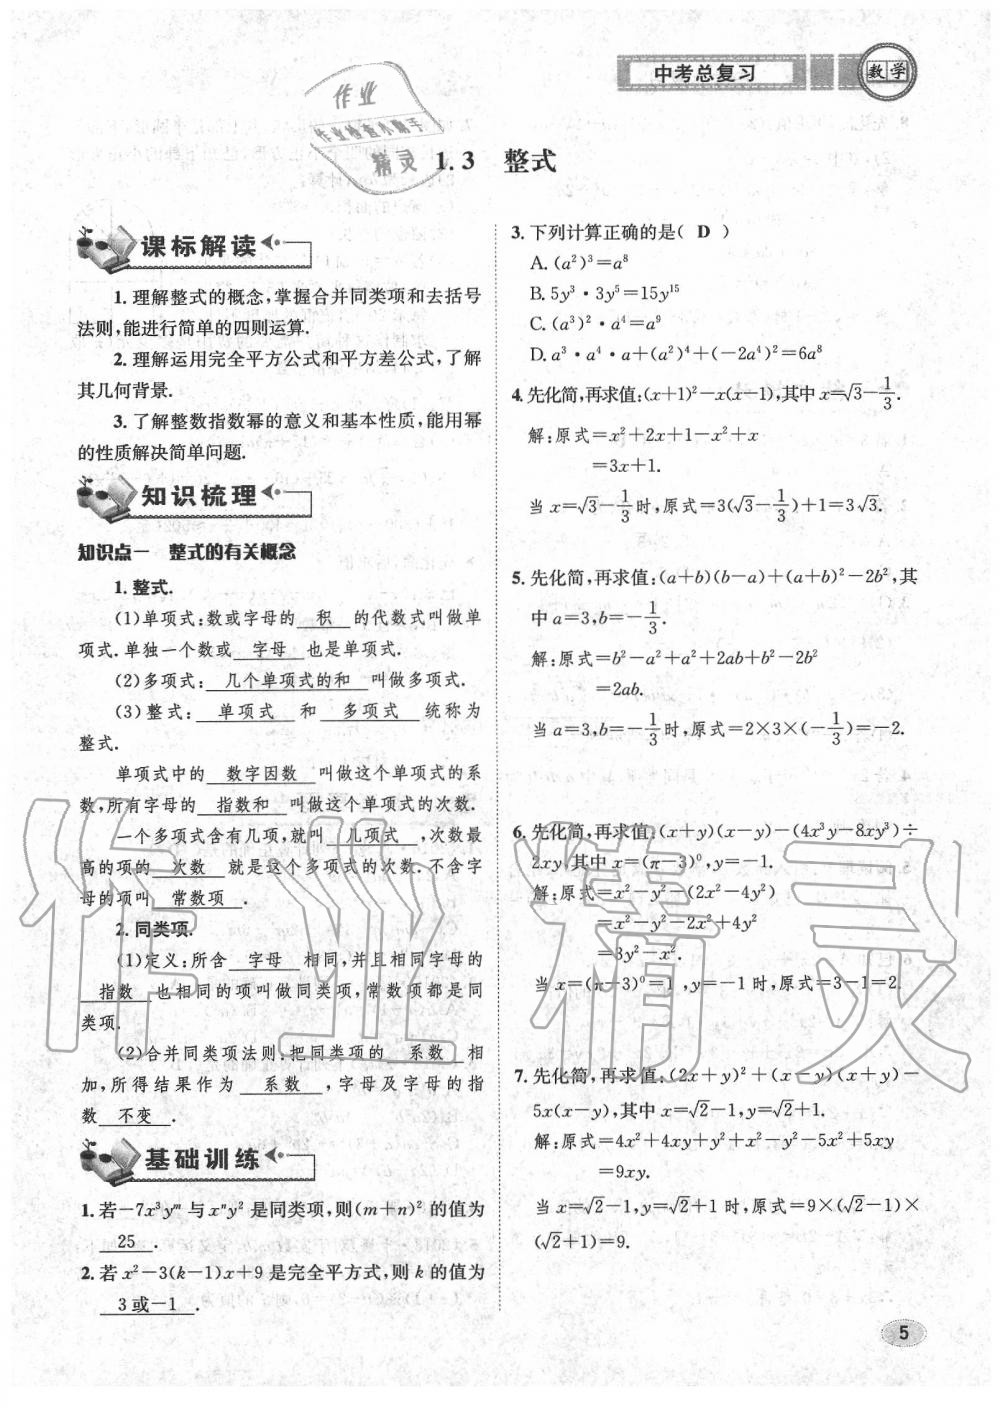 中考总复习
数学
作业
作业检查小帮手
精灵
1.3 整式
课标解读
1.理解整式的概念,掌握合并同类项和去括号
法则,能进行简单的四则运算.
2.理解运用完全平方公式和平方差公式,了解
其几何背景.
3.了解整数指数幂的意义和基本性质,能用幂
的性质解决简单问题.
知识梳理
知识点一 整式的有关概念
1.整式.
(1)单项式:数或字母的 积 的代数式叫做单
项式.单独一个数或 字母 也是单项式.
(2)多项式: 几个单项式的和 叫做多项式.
(3)整式: 单项式 和 多项式 统称为
整式.
单项式中的 数字因数 叫做这个单项式的系
数,所有字母的 指数和 叫做这个单项式的次数.
一个多项式含有几项,就叫 几项式 ,次数最
高的项的 次数 就是这个多项式的次数.不含字
母的项叫 常数项 .
2.同类项.
(1)定义:所含 字母 相同,并且相同字母的
指数 也相同的项叫做同类项,常数项都是同
类项.
(2)合并同类项法则:把同类项的 系数 相
加,所得结果作为 系数 ,字母及字母的指
数 不变 .
基础训练
1.若-7x³yᵐ与xⁿy²是同类项,则(m+n)²的值为
25 .
2.若x²-3(k-1)x+9是完全平方式,则k的值为
3或-1 .
3.下列计算正确的是( D )
A.(a²)³=a⁸
B.5y³·3y⁵=15y¹⁵
C.(a³)²·a⁴=a⁹
D.a³·a⁴·a+(a²)⁴+(-2a⁴)²=6a⁸
4.先化简,再求值:(x+1)²-x(x-1),其中x=√3-1/3.
解:原式=x²+2x+1-x²+x
=3x+1.
当x=√3-1/3时,原式=3(√3-1/3)+1=3√3.
5.先化简,再求值:(a+b)(b-a)+(a+b)²-2b²,其
中a=3,b=-1/3.
解:原式=b²-a²+a²+2ab+b²-2b²
=2ab.
当a=3,b=-1/3时,原式=2×3×(-1/3)=-2.
6.先化简,再求值:(x+y)(x-y)-(4x³y-8xy³)÷
2xy,其中x=(π-3)⁰,y=-1.
解:原式=x²-y²-(2x²-4y²)
=x²-y²-2x²+4y²
=3y²-x².
当x=(π-3)⁰=1,y=-1时,原式=3-1=2.
7.先化简,再求值:(2x+y)²+(x-y)(x+y)-
5x(x-y),其中x=√2-1,y=√2+1.
解:原式=4x²+4xy+y²+x²-y²-5x²+5xy
=9xy.
当x=√2-1,y=√2+1时,原式=9×(√2-1)×
(√2+1)=9.
作业精灵
5